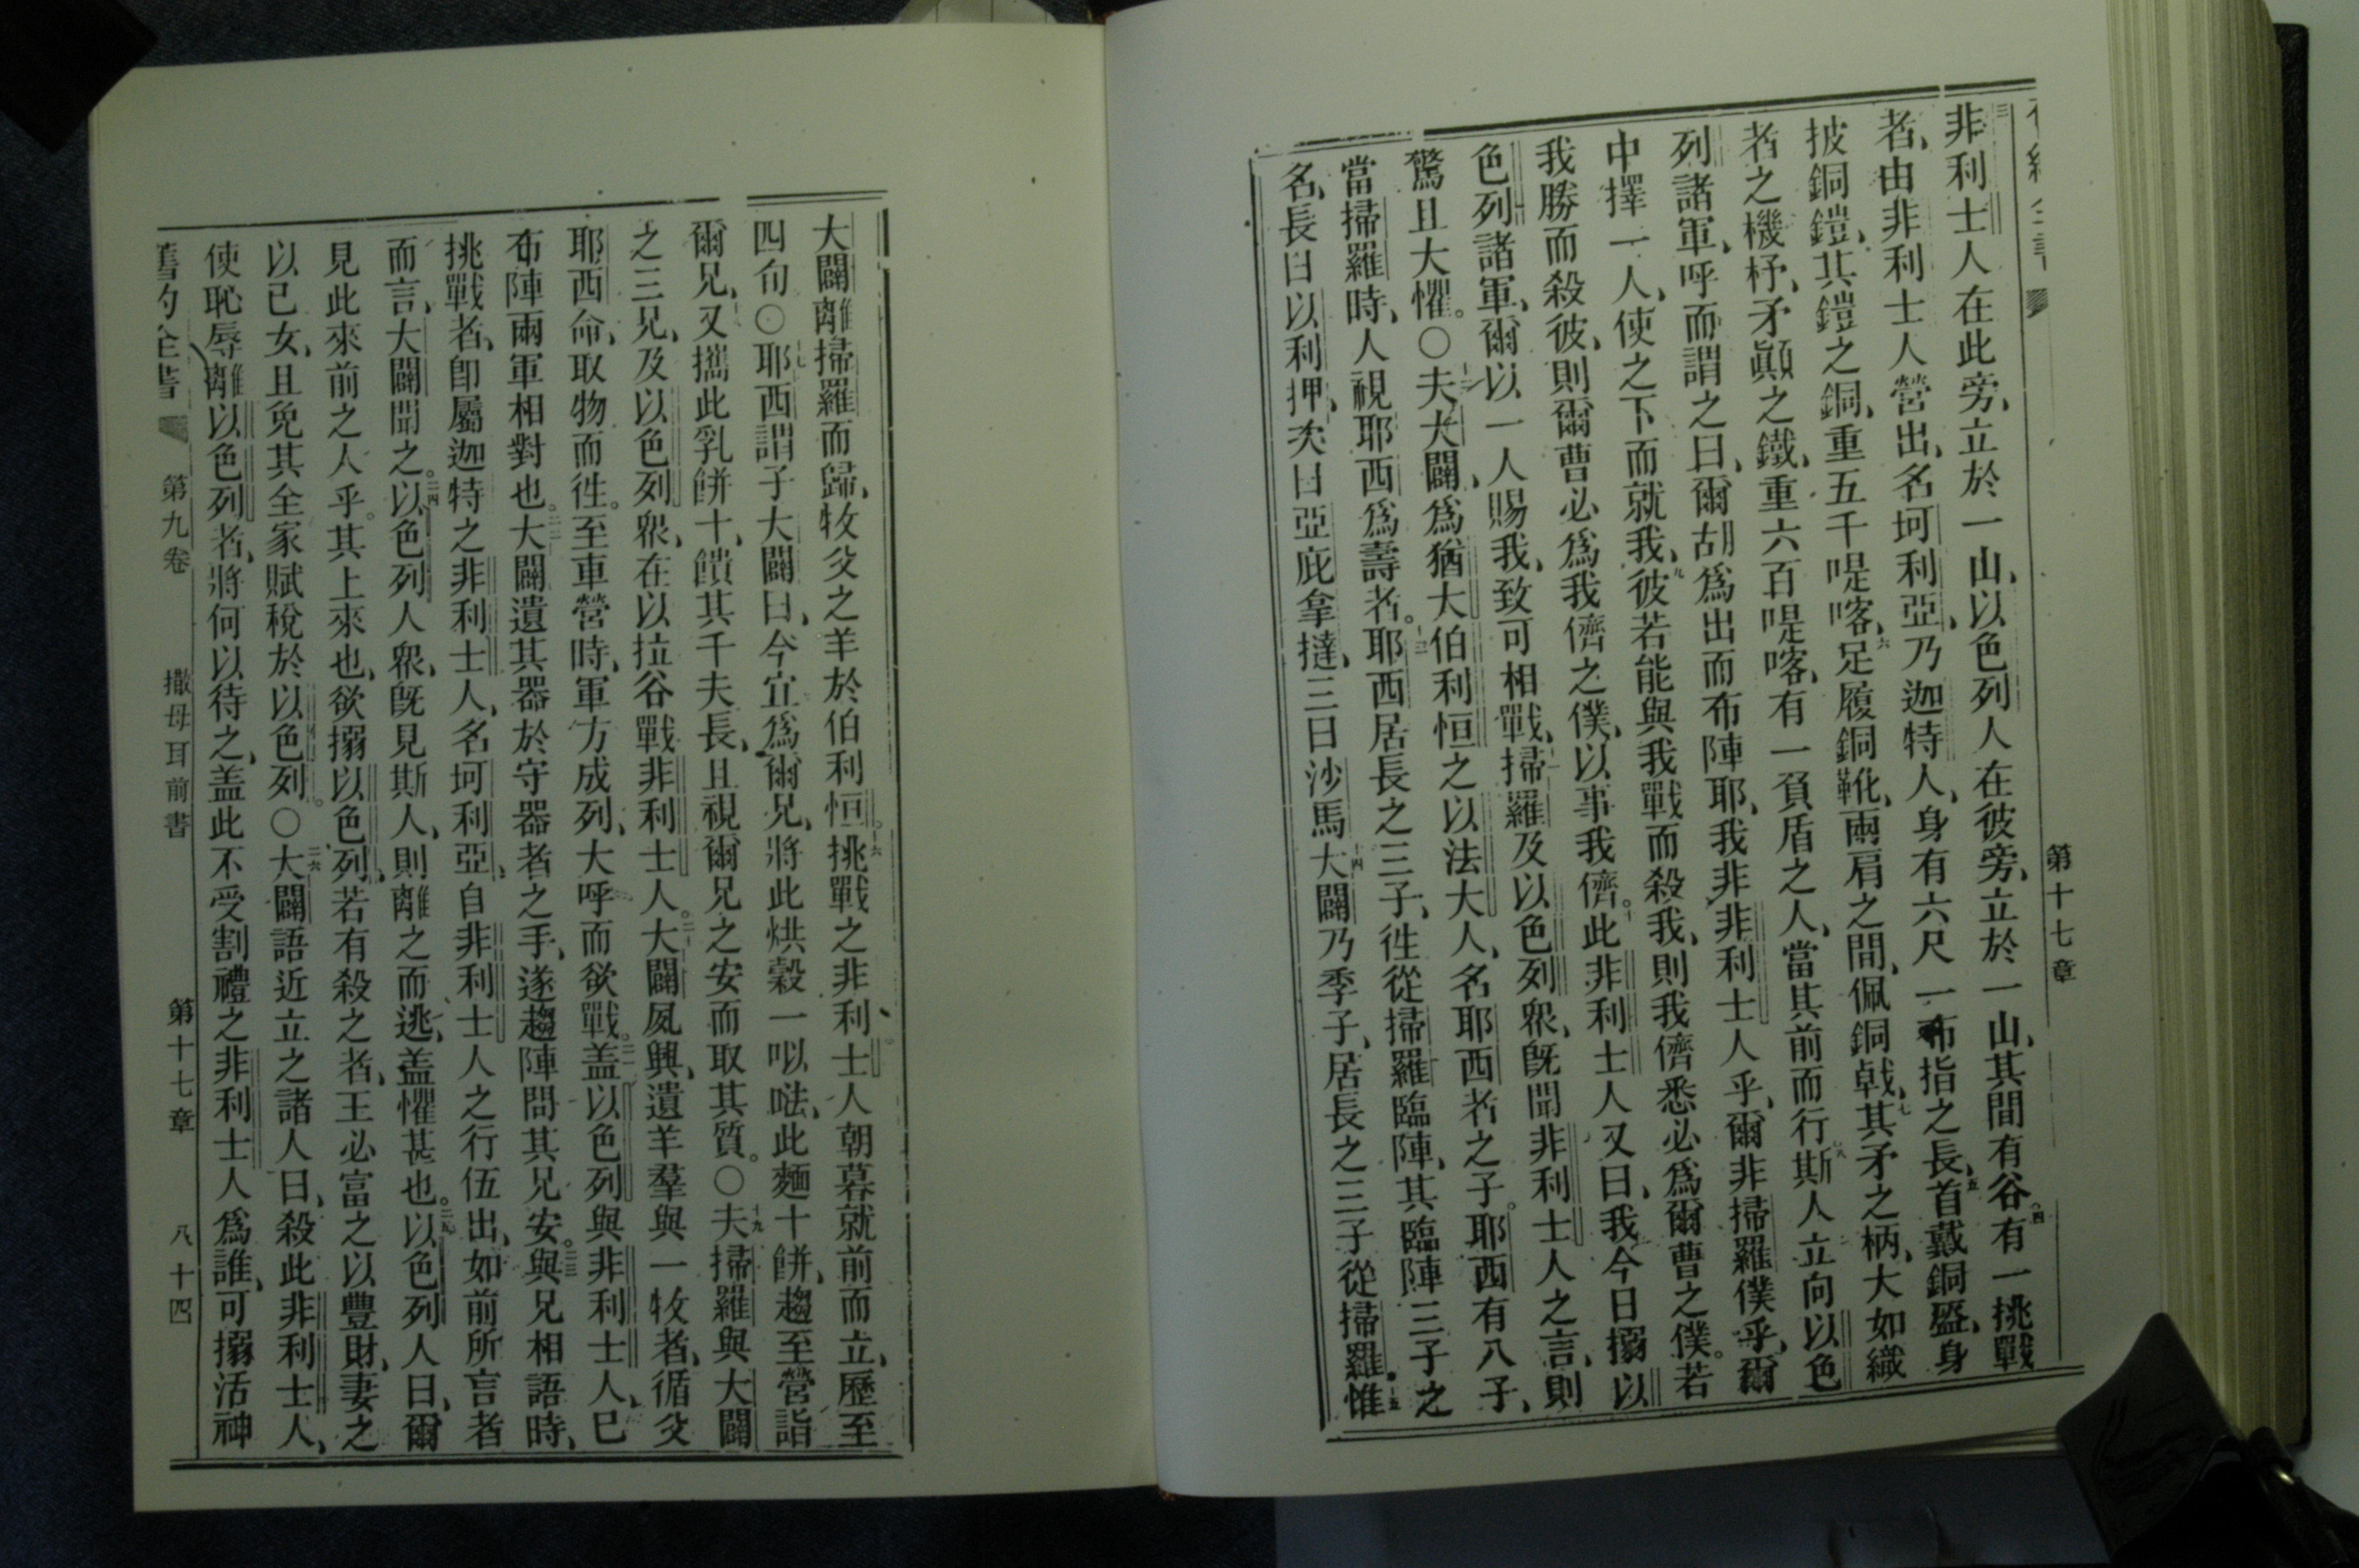 第十七章
三非利士人在此旁、立於一山、以色列人在彼旁、立於一山、其間有谷。四有一挑戰
者、由非利士人營出、名坷利亞、乃迦特人、身有六尺一布指之長、五首戴銅盔、身
披銅鎧、其鎧之銅、重五千㖷喀、六足履銅靴、兩肩之間、佩銅戟、七其矛之柄、大如織
者之機杼、矛顛之鐵、重六百㖷喀、有一負盾之人、當其前而行、八斯人立向以色
列諸軍、呼而謂之曰、爾胡爲出而布陣耶、我非非利士人乎、爾非掃羅僕乎、爾
中擇一人、使之下而就我、九彼若能與我戰而殺我、則我儕悉必爲爾曹之僕。若
我勝而殺彼、則爾曹必爲我儕之僕、以事我儕。十此非利士人又曰、我今日搦以
色列諸軍、爾以一人賜我、致可相戰、十一掃羅及以色列衆、旣聞非利士人之言、則
驚且大懼。○十二夫大闢、爲猶大伯利恒之以法大人、名耶西者之子。耶西有八子、
當掃羅時、人視耶西爲壽者。十三耶西居長之三子、徃從掃羅臨陣、其臨陣三子之
名、長曰以利押、次曰亞庇拿撻、三曰沙馬、十四大闢乃季子、居長之三子從掃羅。十五惟
大闢離掃羅而歸、牧父之羊於伯利恒。十六挑戰之非利士人朝暮就前而立、歷至
四旬○十七耶西謂子大闢曰、今宜爲爾兄、將此烘穀一㕥㕸、此麵十餅、趨至營詣
爾兄、十八又攜此乳餅十、饋其千夫長、且視爾兄之安而取其質。○十九夫掃羅與大闢
之三兄、及以色列衆、在以拉谷戰非利士人。二十大闢夙興、遺羊羣與一牧者、循父
耶西命、取物而徃。至車營時、軍方成列、大呼而欲戰。二一盖以色列與非利士人、已
布陣兩軍相對也。二二大闢遺其器於守器者之手、遂趨陣問其兄安。二三與兄相語時、
挑戰者、卽屬迦特之非利士人、名坷利亞、自非利士人之行伍出、如前所言者
而言、大闢聞之。二四以色列人衆、旣見斯人、則離之而逃、盖懼甚也。二五以色列人曰、爾
見此來前之人乎。其上來也、欲搦以色列、若有殺之者、王必富之以豐財、妻之
以已女、且免其全家賦稅於以色列。○二六大闢語近立之諸人曰、殺此非利士人、
使恥辱離以色列者、將何以待之、盖此不受割禮之非利士人爲誰、可搦活神
舊約全書 第九卷 撒母耳前書 第十七章 八十四